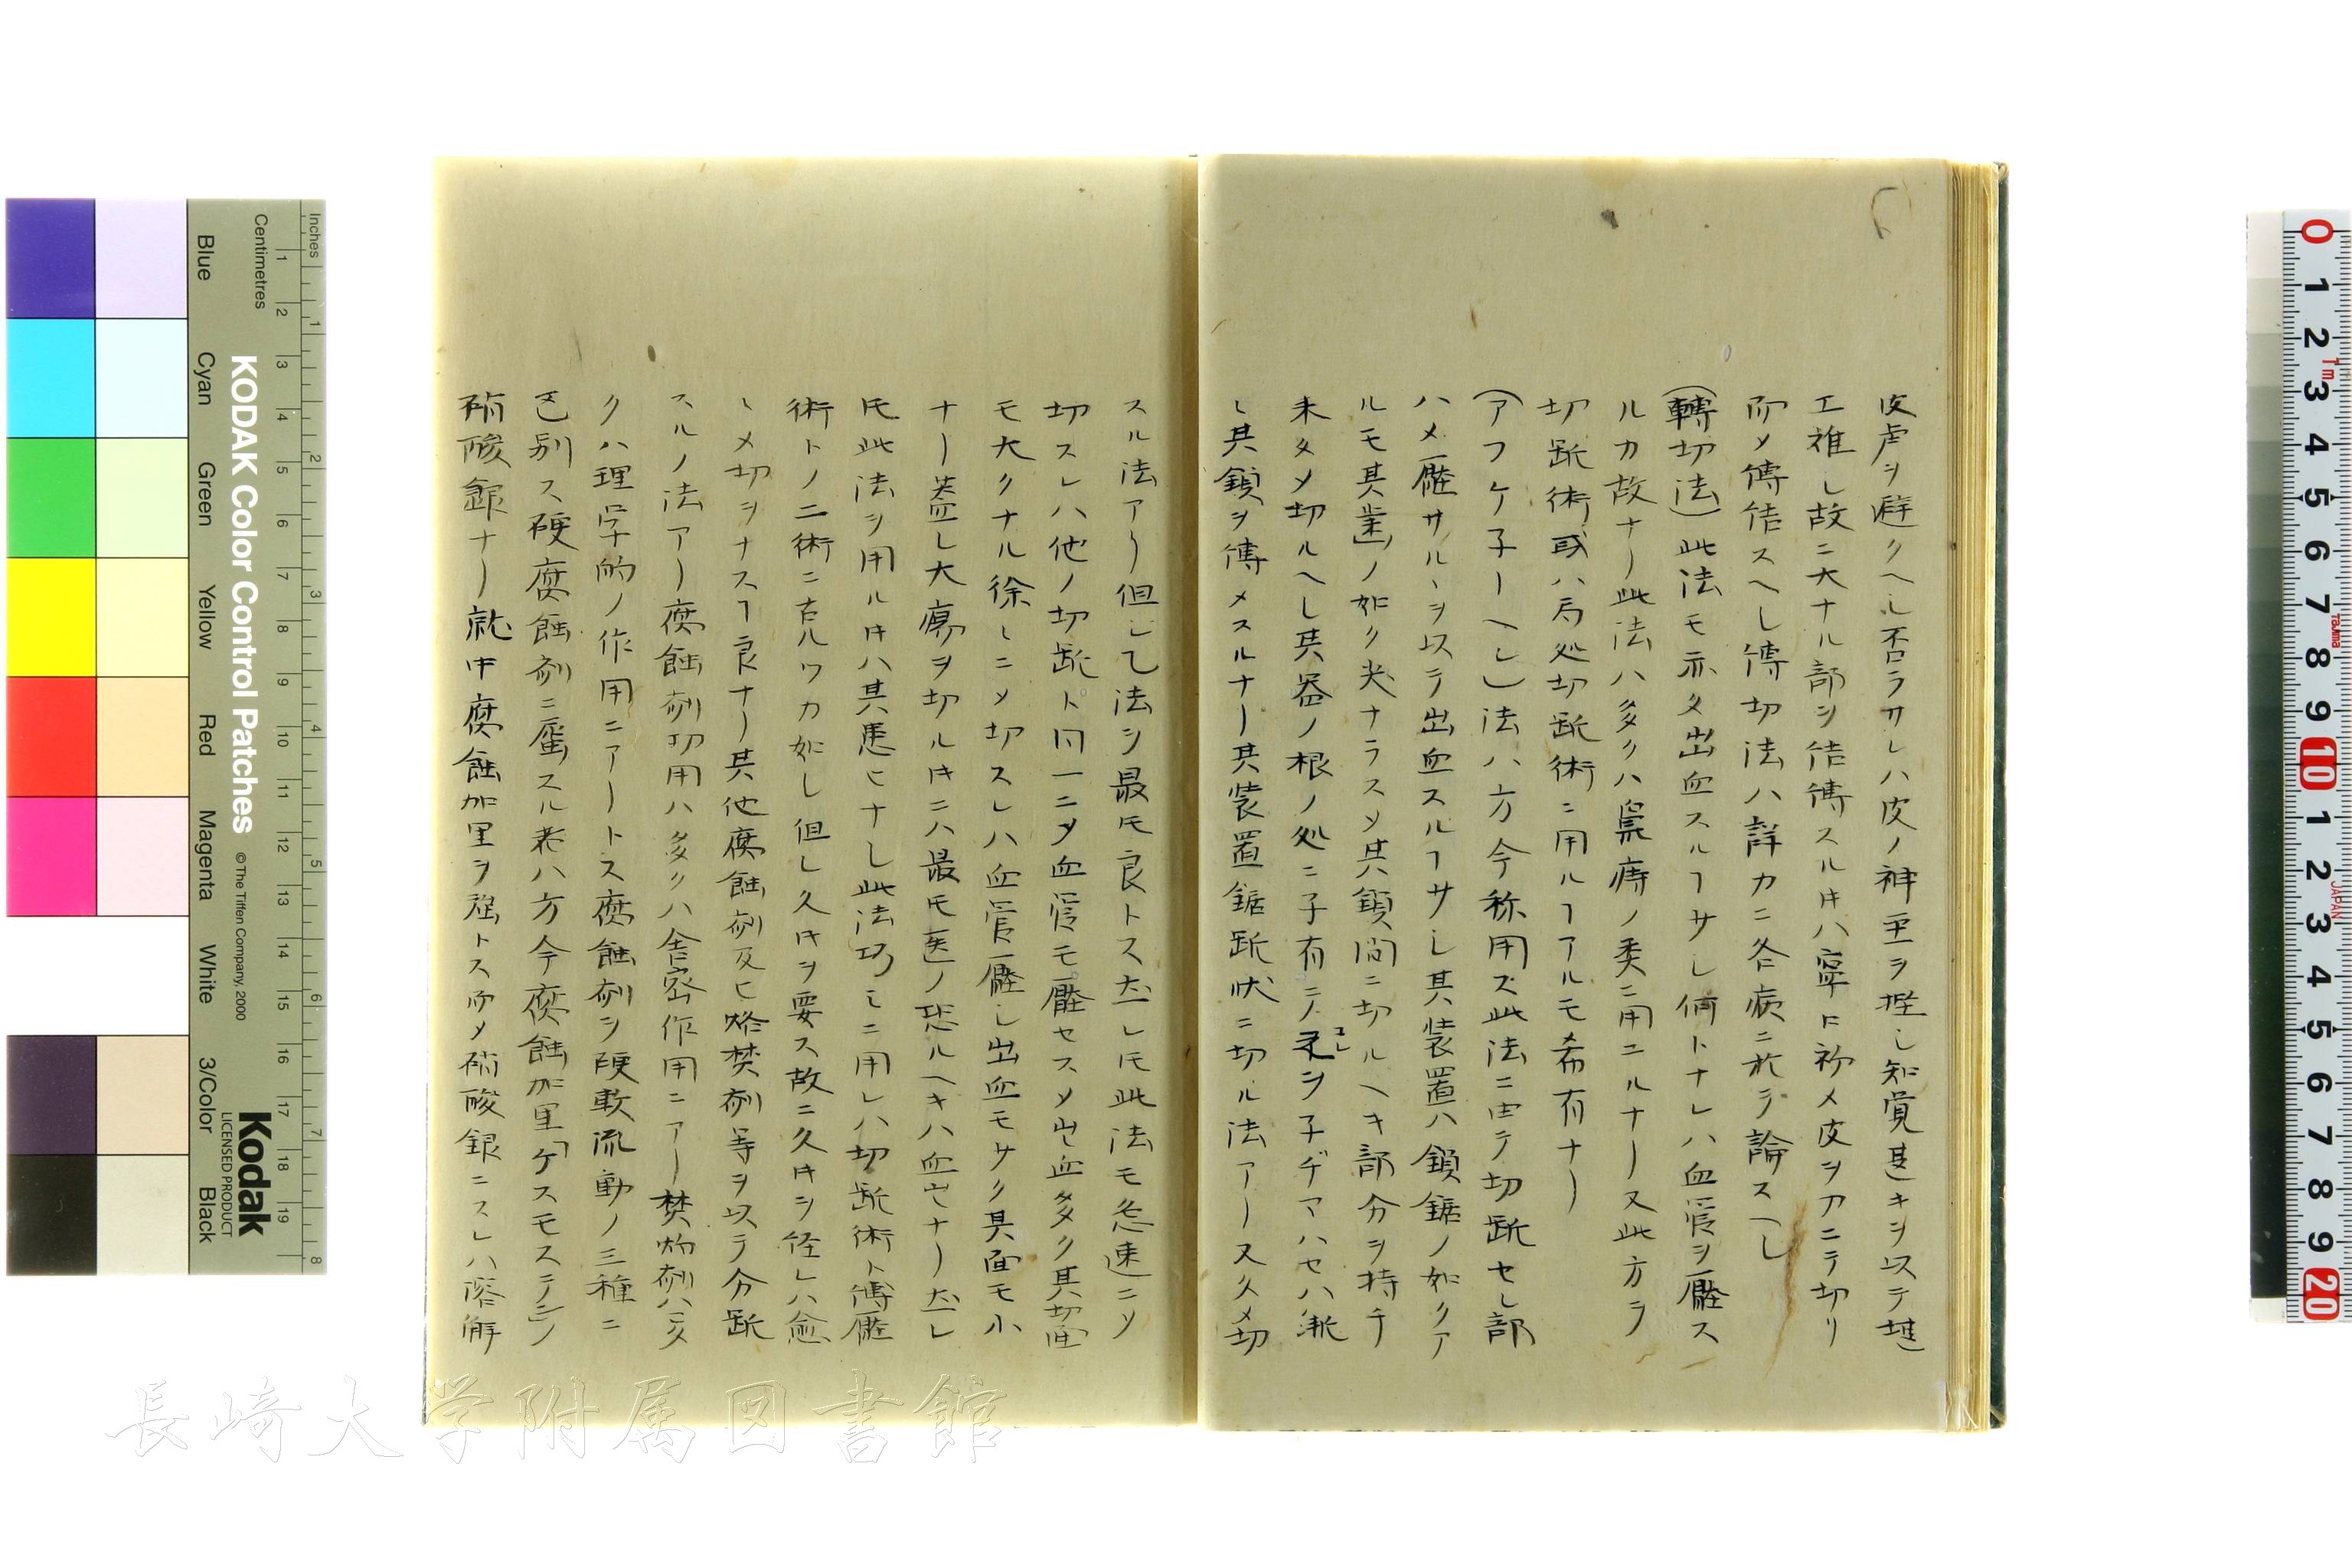 皮膚ヲ避クヘし否ラサレハ皮ノ神至ヲ挫し知覚甚キヲ以テ堪
エ難し故ニ大ナル部ヲ結縛スルトキハ寧ロ初メ皮ヲ刀ニテ切リ
而メ縛結スヘし縛切法ハ詳カニ各病ニ於テ論スヘし
(轉切法)此法モ亦タ出血スルヿサし何トナレハ血管ヲ壓ス
ルカ故ナリ此法ハ多クハ鼻痔ノ類ニ用ニルナリ又此方ヲ
切断術或ハ局処切断術ニ用ルヿアルモ希有ナリ
(アフケ子リヘレ)法ハ方今称用ス此法ニ由テ切断セし部
ハメ壓サルヽヲ以テ出血スルヿサし其装置ハ鎖鋸ノ如クア
ルモ其業ノ如ク尖ナラスメ其鎖間ニ切ルヘキ部分ヲ持チ
未タメ切ルヘし其器ノ根ノ処ニ子有ニノ是ヲ子ヂマハセハ漸
ヽ其鎖ヲ縛メスルナリ其装置鋸断状ニ切ル法アリ又久メ切
スル法アリ但し乙法ヲ最モ良トス然レ𪜈此法モ急速ニメ
切スレハ他ノ切断ト同一ニメ血管モ壓セスメ出血多ク其切面
モ大クナル徐ヽニメ切スレハ血管壓し出血モサク其面モ小
ナリ蓋し大瘍ヲ切ルトキニハ最モ医ノ恐ルヘキハ血出ナリ然レ
𪜈此法ヲ用ルトキハ其患ヒナし此法巧ミニ用レハ切断術ト縛壓
術トノ二術ニ在ルワカ如し但し久トキヲ要ス故ニ久トキヲ経レハ愈
ヽメ切ヲナスヿ良ナリ其他腐蝕剤及ヒ烙焚剤等ヲ以テ分断
スルノ法アリ腐蝕剤切用ハ多クハ舎密作用ニアリ焚灼剤ハ多
クハ理学的ノ作用ニアリトス腐蝕剤ヲ硬軟流動ノ三種ニ
區別ス硬腐蝕剤ニ属スル者ハ方今腐蝕加里「ケスモステン」ノ
硝酸銀ナリ就中腐蝕加里ヲ強トス而メ硝酸銀ニスレハ溶解
コレ
長崎大学附属図書館
KODAK Color Control Patches
©The Tiffen Company, 2000
Kodak
LICENSED PRODUCT
Inches
Centimetres
Blue
Cyan
Green
Yellow
Red
Magenta
White
3/Color
Black